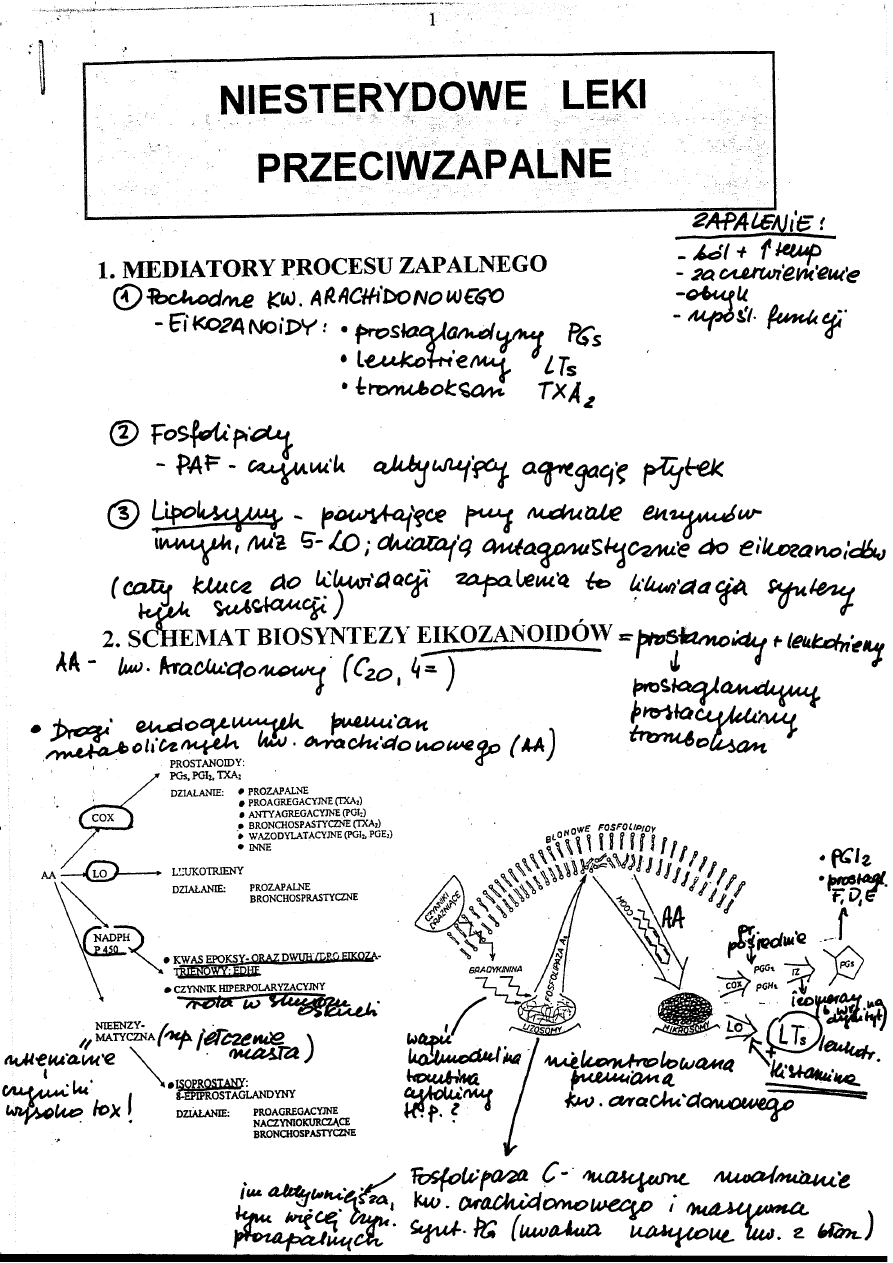 1
NIESTERYDOWE LEKI
PRZECIWZAPALNE
ZAPALENIE:
- ból + ↑ temp
- zaczerwienienie
- obrzęk
- upośl. funkcji
1. MEDIATORY PROCESU ZAPALNEGO
① Pochodne KW. ARACHIDONOWEGO
- EIKOZANOIDY: • prostaglandyny PGs
• leukotrieny LTs
• tromboksan TXA₂
② Fosfolipidy
- PAF - czynnik aktywujący agregację płytek
③ Lipoksyny - powstające przy udziale enzymów
innych, niż 5-LO; działają antagonistycznie do eikozanoidów
(cały klucz do likwidacji zapalenia to likwidacja syntezy
tych substancji)
2. SCHEMAT BIOSYNTEZY EIKOZANOIDÓW = prostanoidy + leukotrieny
AA - kw. Arachidonowy (C20, 4=)
prostaglandyny
prostacykliny
tromboksan
• Drogi endogennych przemian
metabolicznych kw. arachidonowego (AA)
PROSTANOIDY:
PGs, PGI₂, TXA₂
DZIAŁANIE: • PROZAPALNE
• PROAGREGACYJNE (TXA₂)
• ANTYAGREGACYJNE (PGI₂)
• BRONCHOSPASTYCZNE (TXA₂)
• WAZODYLATACYJNE (PGI₂, PGE₂)
• INNE
COX
AA
LO
LEUKOTRIENY
DZIAŁANIE: PROZAPALNE
BRONCHOSPRASTYCZNE
NADPH
P 450
• KWAS EPOKSY- ORAZ DWUHYDRO EIKOZA-
TRIENOWY: EDHE
• CZYNNIK HIPERPOLARYZACYJNY
rola w
NIEENZY-
MATYCZNA (np jełczenie
masła)
utlenianie
czynniki
wysoko tox!
• ISOPROSTANY:
8-EPIPROSTAGLANDYNY
DZIAŁANIE: PROAGREGACYJNE
NACZYNIOKURCZĄCE
BRONCHOSPASTYCZNE
BLONOWE FOSFOLIPIDY
CZYNNIKI
DRAŻNIĄCE
BRADYKININA
FOSFOLIPAZA A₂
LIZOSOMY
COOH
AA
MIKROSOMY
COX
LO
pr.
pośrednie
PGG₂
PGH₂
IZ
PGs
• PGI2
• prostagl.
F, D, E
izomerazy
LTs
leukotr.
+
histamina
wapń
kalmodulina
trombina
cytokiny
niekontrolowana
przemiana
kw. arachidonowego
Fosfolipaza C - masywne uwalnianie
kw. arachidonowego i masywna
synt. PG (uwalnia nasycone kw. z błon)
im aktywniejsza,
tym więcej czyn.
prozapalnych